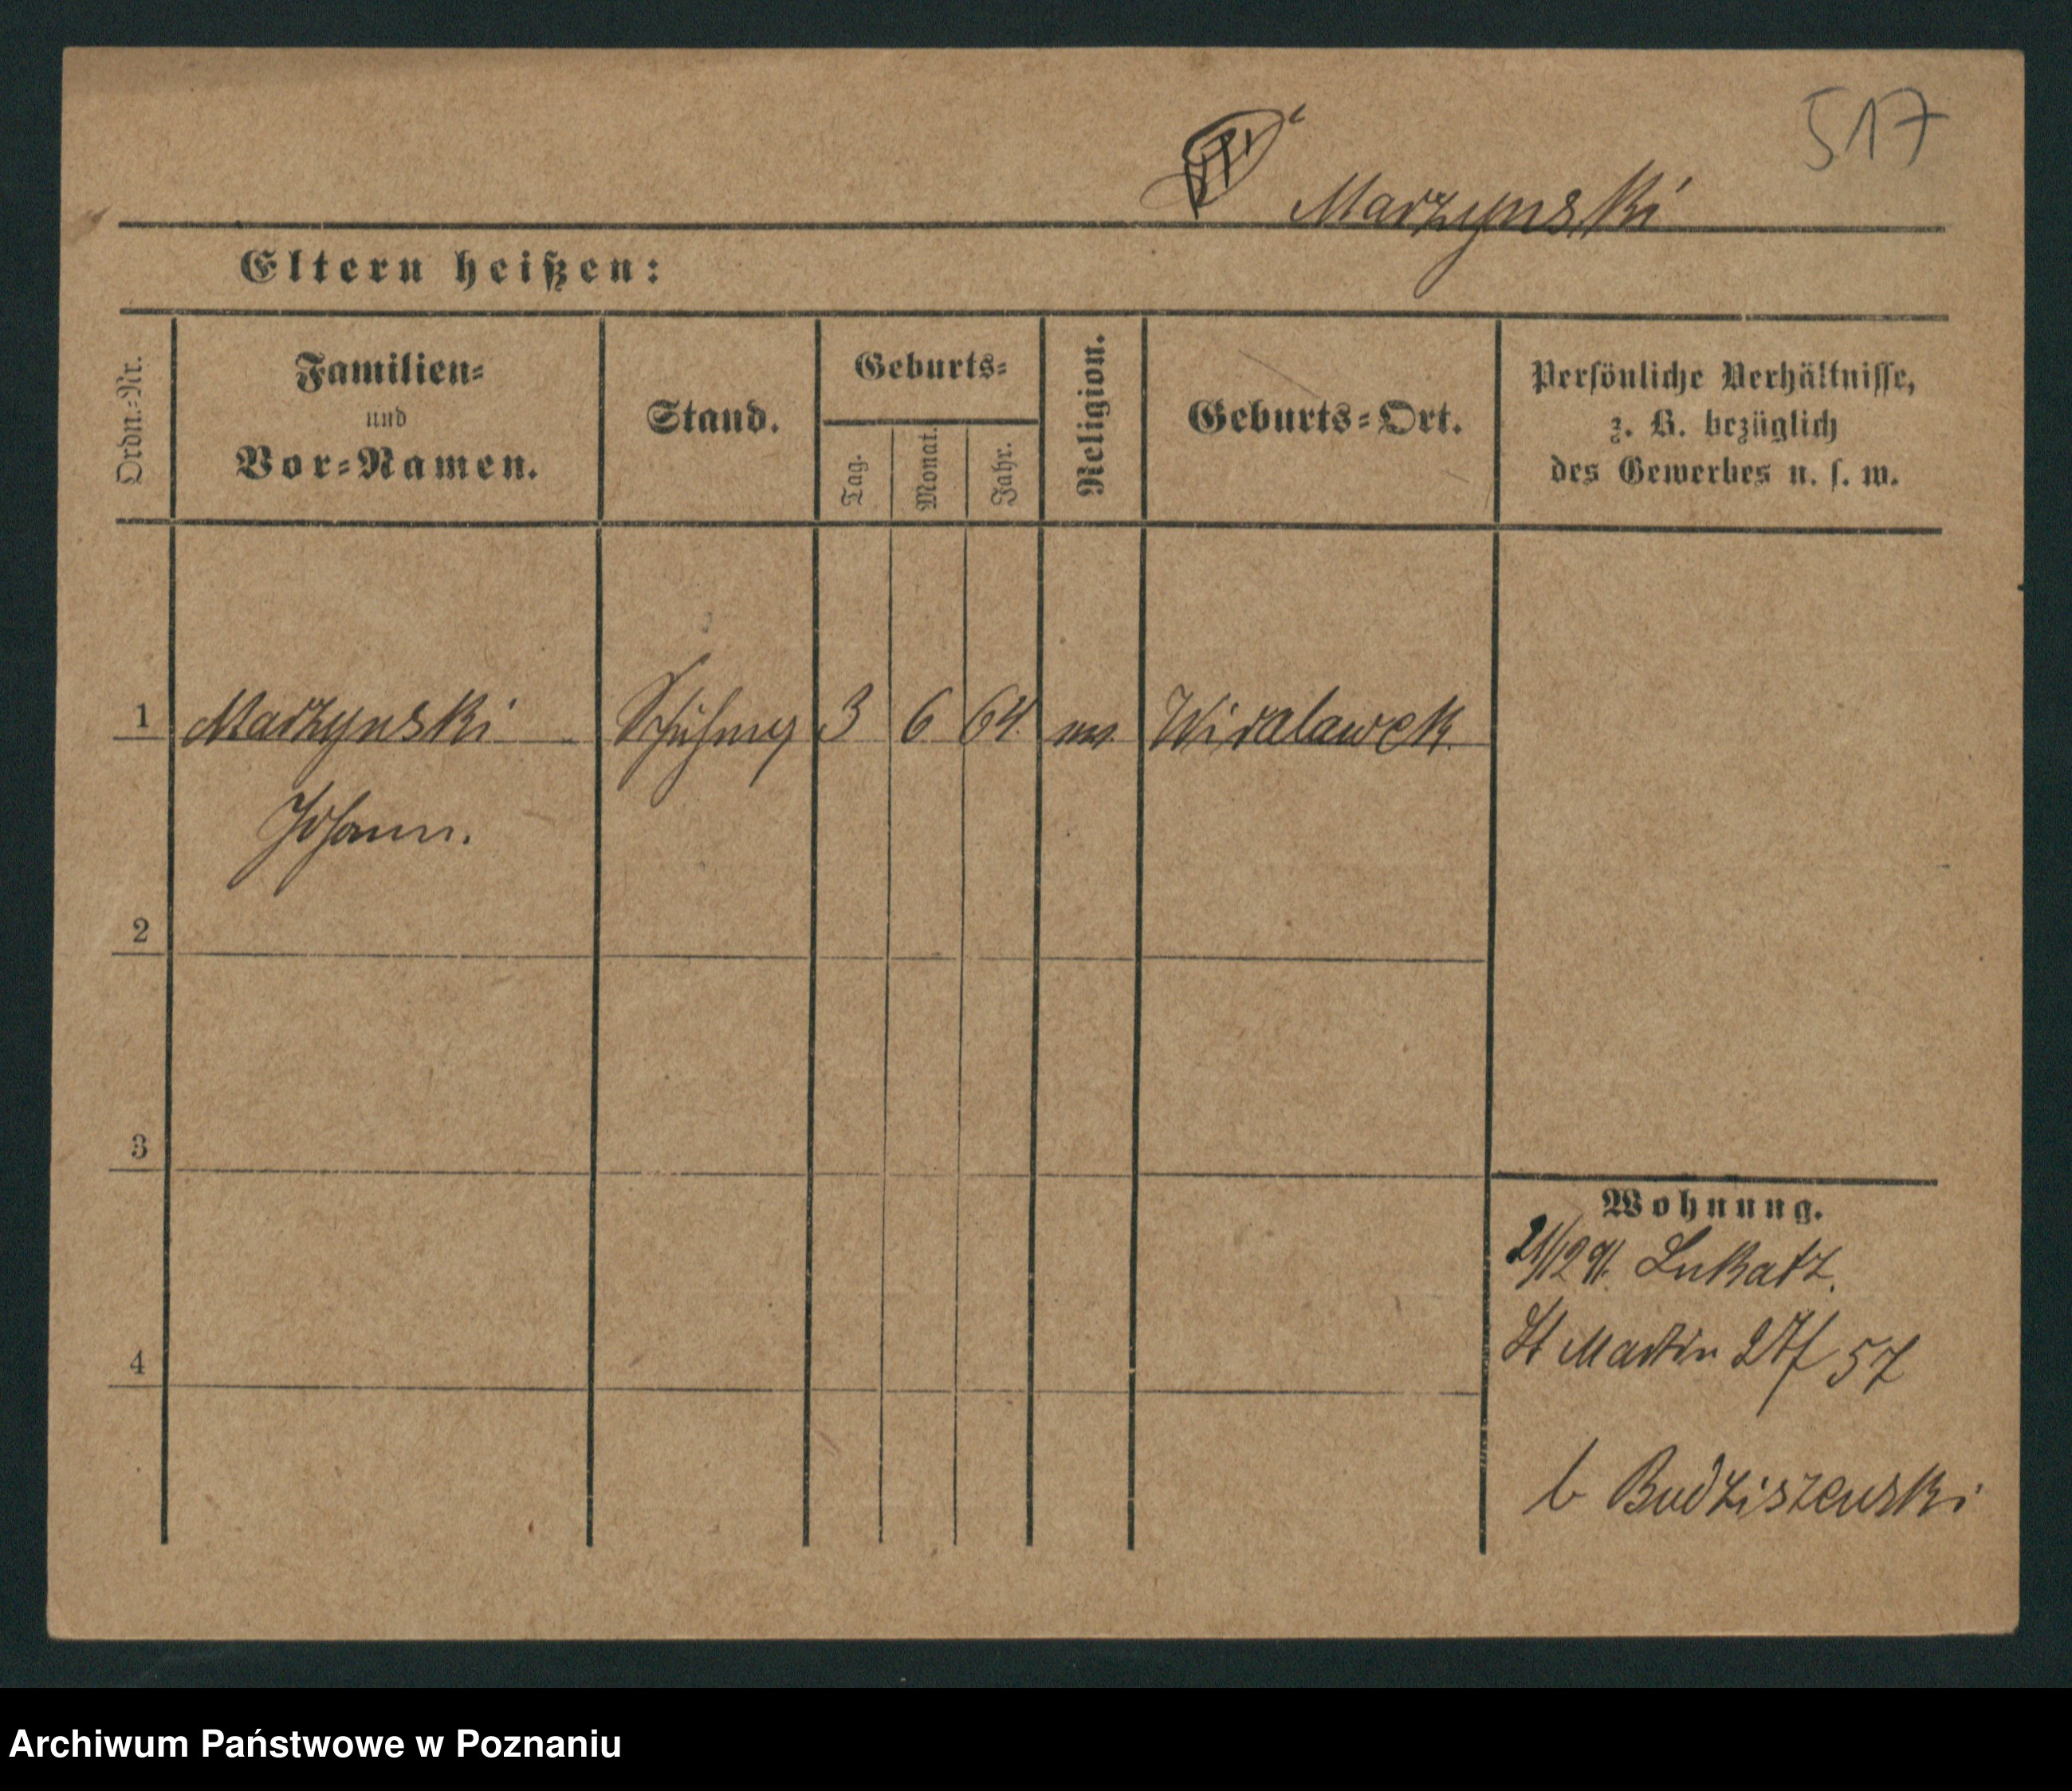 517
Marzynski
Eltern heißen:
Ordn.-Nr.
Familien-
und
Vor-Namen.
Stand.
Geburts-
Tag.
Monat.
Jahr.
Religion.
Geburts-Ort.
Persönliche Verhältnisse,
z. B. bezüglich
des Gewerbes u. s. w.
1 Marzynski 3 6 64.
Johann.
2
3
4
Wohnung.
21/12 91. Lukatz.
St Martin 57
b Budziszewski
Archiwum Państwowe w Poznaniu